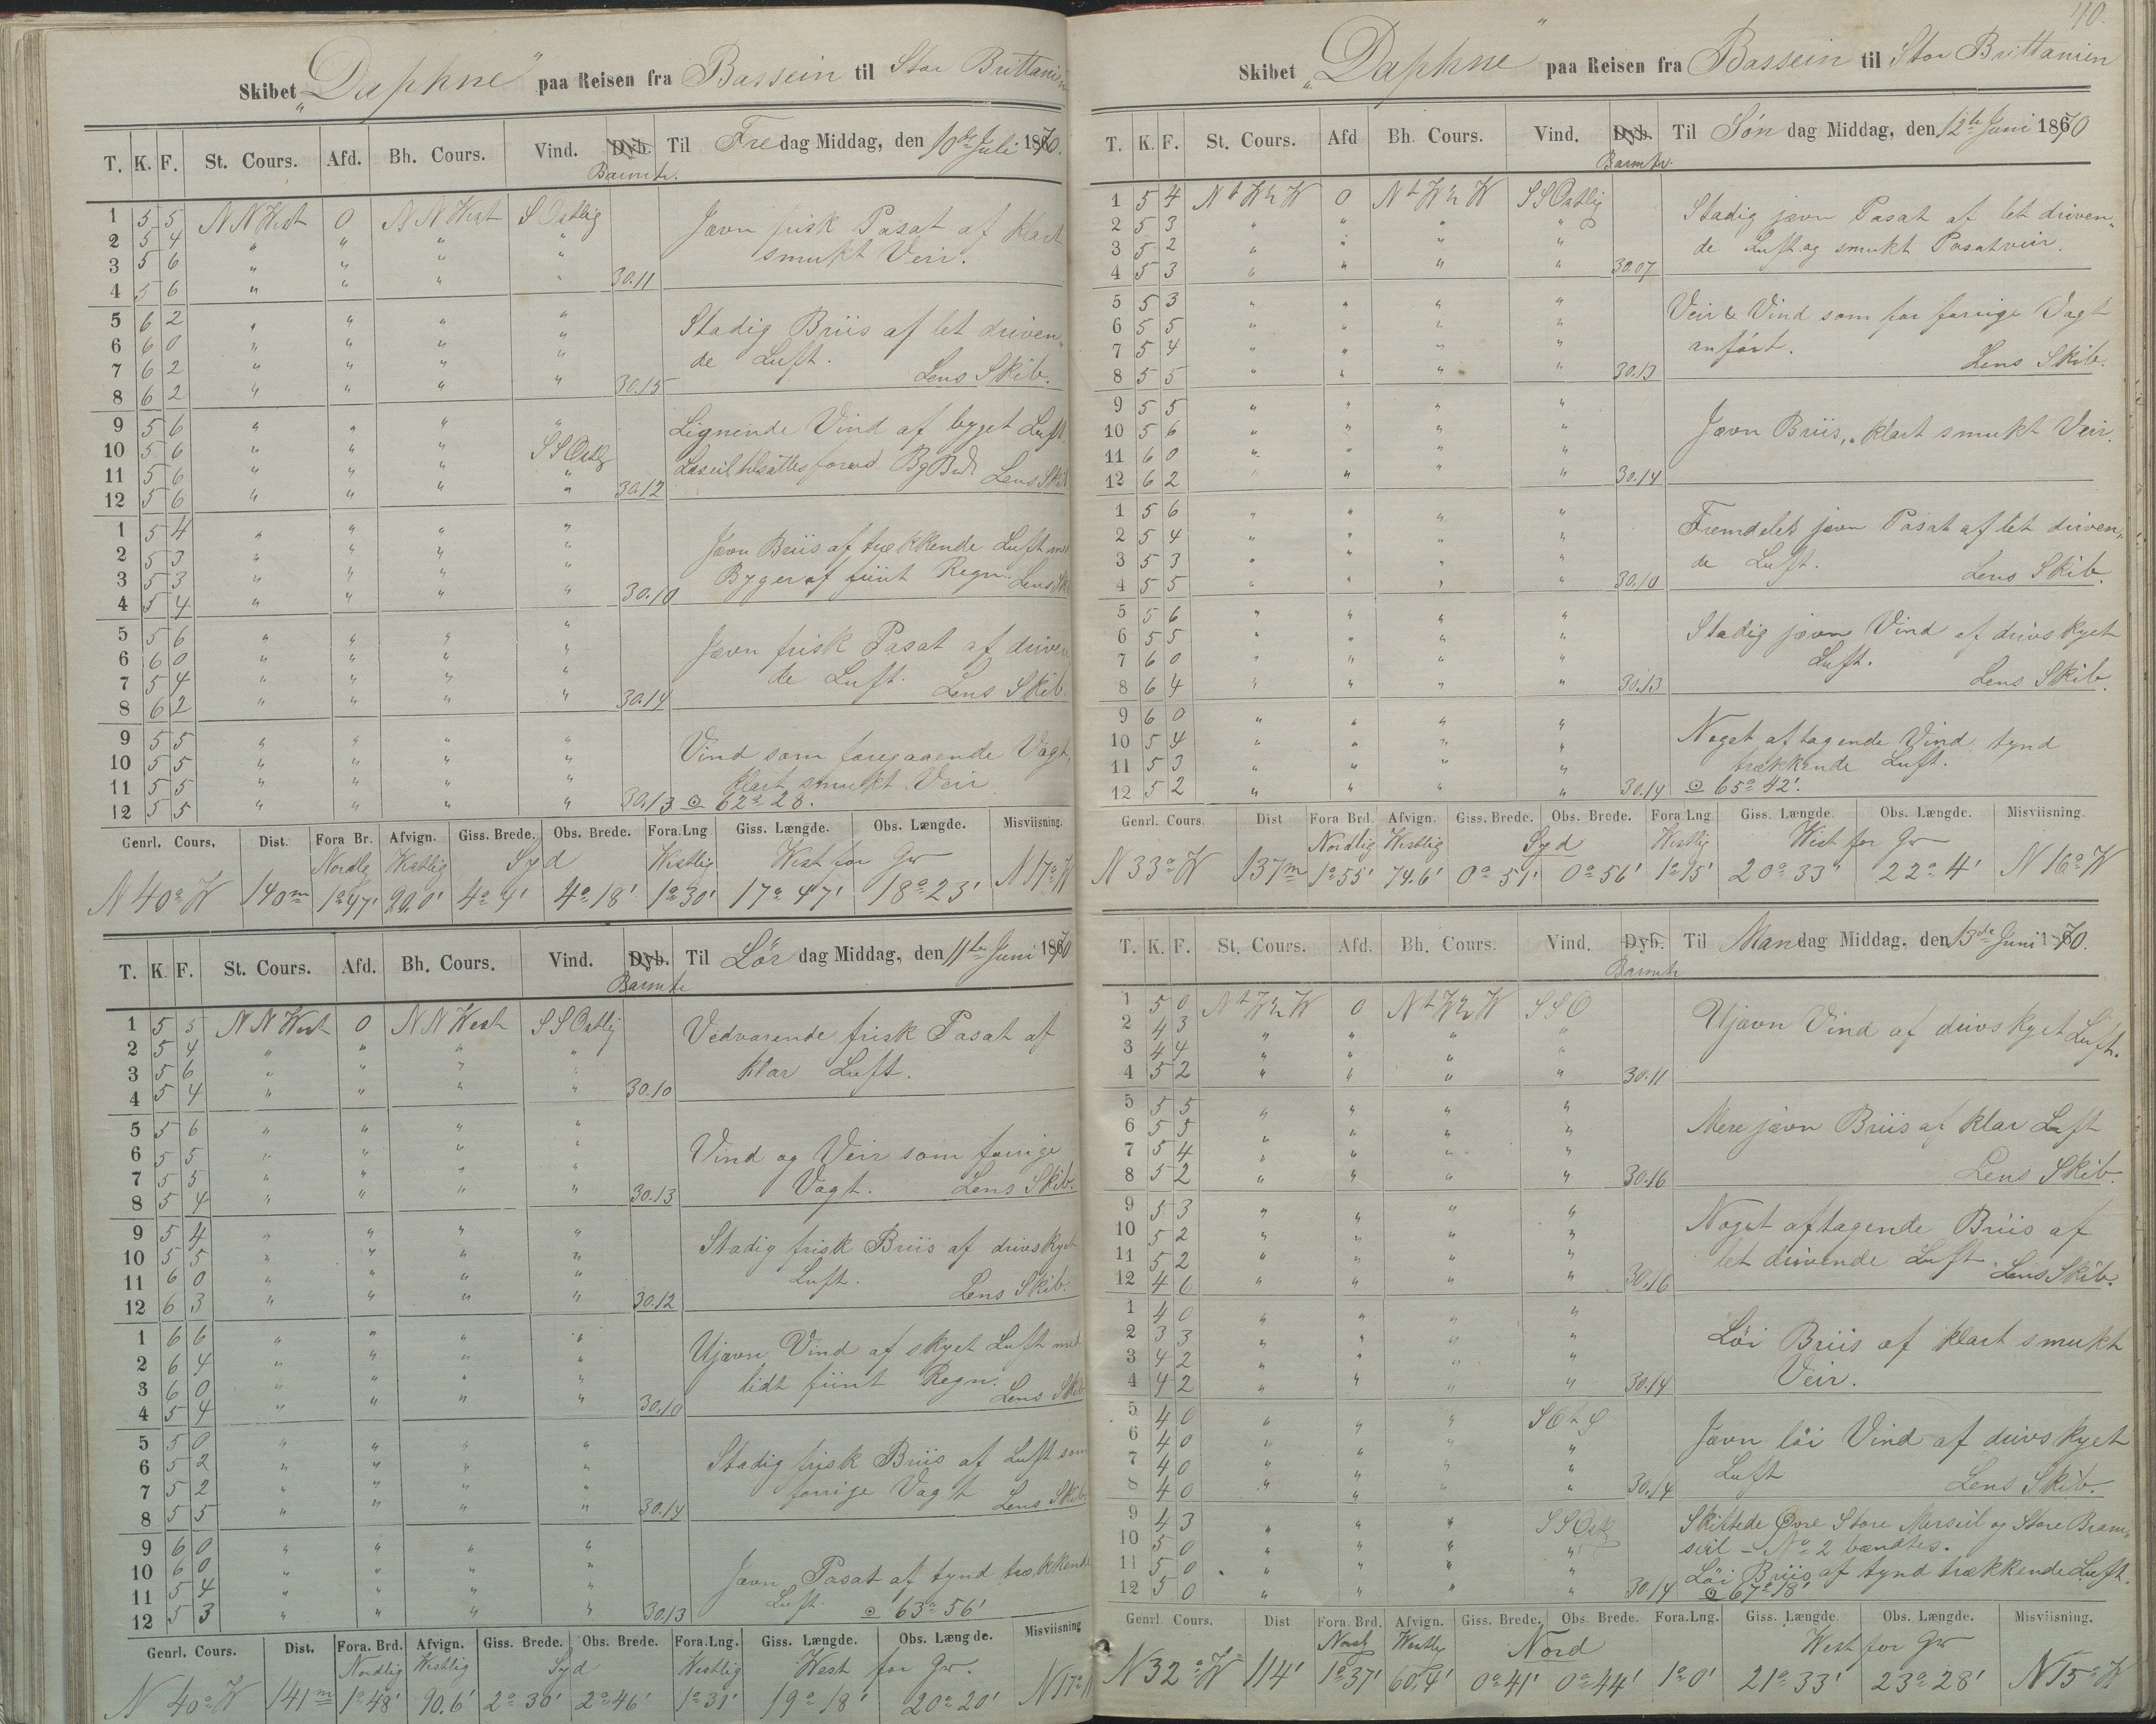 Skibet „Daphne" paa Reisen fra Bassein til Stor Brittanien
T. K. F. St. Cours. Afd. Bh. Cours. Vind. Dyb. Barmtr. Til Fredag Middag, den 10de Juli 1870.
1 5 5 NNWest 0 NNWest SOstlig Jævn frisk Pasat af klart
2 5 4 " " " " smukt Veir.
3 5 6 " " " "
4 5 6 " " " " 30.11
5 6 2 " " " " Stadig Briis af let driven„
6 6 0 " " " " de Luft.
7 6 2 " " " " Lens Skib.
8 6 2 " " " " 30.15
9 5 6 " " " " Lignende Vind af byget Luft
10 5 6 " " " SSOstlig
11 5 6 " " " " Læseil tilsattes forud BgBd. Lens Skib
12 5 6 " " " " 30.12
1 5 4 " " " " Jævn Briis af trækkende Luft med
2 5 3 " " " " Byger af fiint Regn. Lens Sk
3 5 3 " " " "
4 5 4 " " " " 30.10
5 5 6 " " " " Jævn frisk Pasat af driven
6 6 0 " " " " de Luft. Lens Skib.
7 5 4 " " " "
8 6 2 " " " " 30.14
9 5 5 " " " " Vind som foregaaende Vagt,
10 5 5 " " " " klart smukt Veir
11 5 5 " " " "
12 5 5 " " " " 30.13 ⊙ 62° 28.
Genrl. Cours. Dist. Fora Br. Afvign. Giss. Brede. Obs. Brede. Fora.Lng Giss. Længde. Obs. Længde. Misviisning.
Nordlg Westlig Syd Westlig West for Gw
N 40° W 140m 1°47' 90.0' 4° 4' 4° 18' 1°30' 17° 47' 18° 23' N 17° W
T. K. F. St. Cours. Afd. Bh. Cours. Vind. Dyb. Barmtr Til Lørdag Middag, den 11te Juni 1870
1 5 5 NNWest 0 NNWest SSOstlig Vedvarende frisk Pasat af
2 5 4 " " " " klar Luft.
3 5 6 " " " "
4 5 4 " " " " 30.10
5 5 6 " " " " Vind og Veir som forrige
6 5 5 " " " "
7 5 5 " " " " Vagt. Lens Skib.
8 5 4 " " " " 30.13
9 5 4 " " " " Stadig frisk Briis af drivskyet
10 5 5 " " " " Luft.
11 6 0 " " " " Lens Skib.
12 6 3 " " " " 30.12
1 6 6 " " " " Ujævn Vind af skyet Luft med
2 6 4 " " " " lidt fiint Regn.
3 6 0 " " " " Lens Skib.
4 5 4 " " " " 30.10
5 5 0 " " " " Stadig frisk Briis af Luft som
6 5 2 " " " " forrige Vagt
7 5 2 " " " " Lens Skib
8 5 5 " " " " 30.14
9 6 0 " " " " Jævn Pasat af tynd trækkende
10 6 0 " " " " Luft.
11 5 4 " " " "
12 5 3 " " " " 30.13 ⊙ 63° 56'
Genrl. Cours. Dist. Fora. Brd. Afvign. Giss. Brede. Obs. Brede. Fora.Lng. Giss. Længde. Obs. Længde. Misviisning
Nordlig Westlig Syd Westlig West for Gw.
N 40° W 141m 1° 48' 90.6' 2° 30' 2° 46' 1° 31' 19° 18' 20° 20' N 17° W
40.
Skibet „Daphne" paa Reisen fra Bassein til Stor Brittanien
T. K. F. St. Cours. Afd Bh. Cours. Vind. Dyb. Barmtr. Til Søndag Middag, den 12te Juni 1870
1 5 4 NtW½W 0 NtW½W SSOstlig Stadig jævn Pasat af let driven„
2 5 3 " " " " de Luft og smukt Pasatveir.
3 5 2 " " " "
4 5 3 " " " " 30.07
5 5 3 " " " " Veir & Vind som for forrige Vagt
6 5 5 " " " " anført.
7 5 4 " " " " Lens Skib.
8 5 5 " " " " 30.13
9 5 5 " " " " Jævn Briis, klart smukt Veir.
10 5 6 " " " "
11 6 0 " " " "
12 6 2 " " " " 30.14
1 5 6 " " " " Fremdeles jævn Pasat af let driven„
2 5 4 " " " " de Luft.
3 5 3 " " " " Lens Skib.
4 5 5 " " " " 30.10
5 5 6 " " " " Stadig jævn Vind af drivskyet
6 5 5 " " " " Luft.
7 6 0 " " " " Lens Skib.
8 6 4 " " " " 30.13
9 6 0 " " " " Noget aftagende Vind, tynd
10 5 4 " " " " trækkende Luft.
11 5 3 " " " "
12 5 2 " " " " 30.14 ⊙ 65° 42'.
Genrl. Cours. Dist Fora Brd. Afvign. Giss. Brede. Obs. Brede. Fora Lng Giss. Længde. Obs. Længde. Misviisning
Nordlig Westlig Syd Westlig West for Gw
N 33° W 137m 1° 55' 74.6' 0° 51' 0° 56' 1° 15' 20° 33' 22° 4' N 16° W
T. K. F. St. Cours. Afd. Bh. Cours. Vind. Dyb. Barmtr Til Mandag Middag, den 13de Juni 1870.
1 5 0 NtW½W 0 NtW½W SSO Ujævn Vind af drivskyet Luft.
2 4 3 " " " "
3 4 4 " " " "
4 5 2 " " " " 30.11
5 5 5 " " " " Mere jævn Briis af klar Luft
6 5 5 " " " "
7 5 4 " " " " Lens Skib.
8 5 2 " " " " 30.16
9 5 3 " " " " Noget aftagende Briis af
10 5 2 " " " " let drivende Luft. Lens Skib.
11 5 2 " " " "
12 4 6 " " " " 30.16
1 4 0 " " " " Löi Briis af klart smukt
2 3 3 " " " " Veir.
3 4 2 " " " "
4 4 2 " " " " 30.14
5 4 0 " " " SOtS Jævn löi Vind af drivskyet
6 4 0 " " " " Luft
7 4 0 " " " " Lens Skib.
8 4 0 " " " " 30.14
9 4 3 " " " SSOst Skiftede Øvre Store Merseil og Store Bram„
10 5 0 " " " " seil – No 2 bændtes.
11 5 0 " " " " Löi Briis af tynd trækkende Luft.
12 5 0 " " " " 30.14 ⊙ 67° 18'
Genrl. Cours. Dist Fora. Brd. Afvign. Giss. Brede. Obs. Brede. Fora.Lng. Giss. Længde. Obs. Længde. Misviisning.
Nordlg Westlig Nord West for Gw
N 32° W 114' 1° 37' 60.4' 0° 41' 0° 44' 1° 0' 21° 33' 23° 28' N 15° W